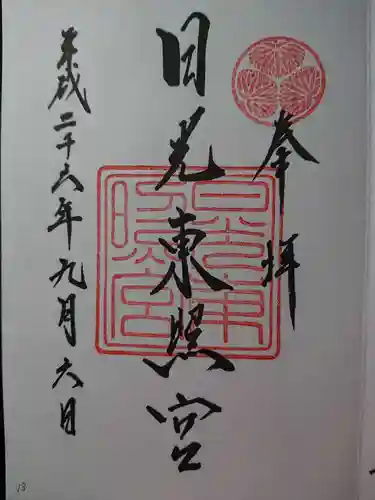 奉拝
日光東照宮
平成二十六年九月六日
日光東照宮
13